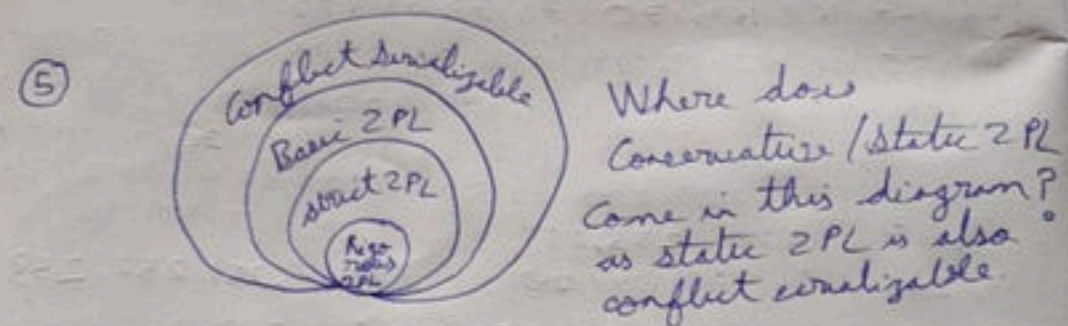 5
Conflict Serializable
Basic 2 PL
strict 2 PL
Rigo
rous
2PL
Where does
Conservative / Static 2 PL
come in this diagram?
as static 2 PL is also
conflict serializable